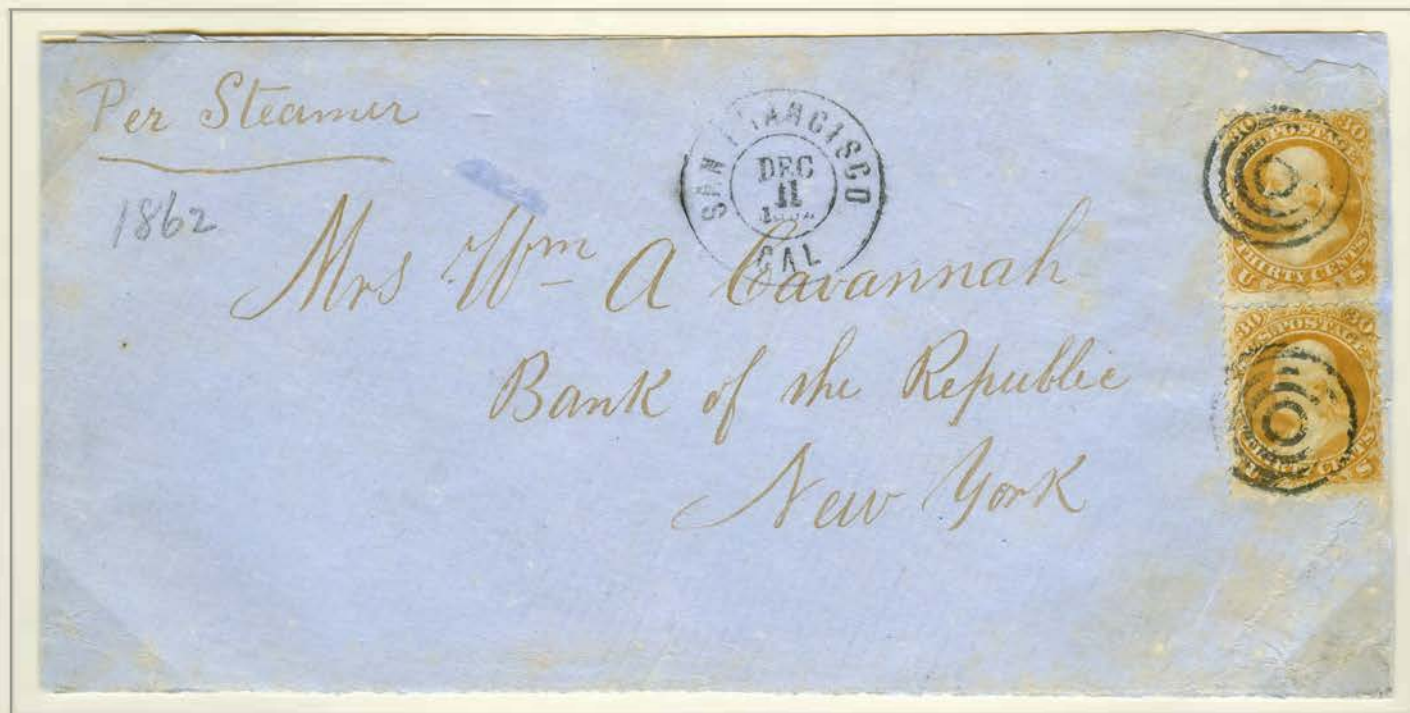 Per Steamer
1862
SAN FRANCISCO
DEC
11
CAL
Mrs Wm A Cavannah
Bank of the Republic
New York
30 POSTAGE 30
THIRTY CENTS
U S
30 POSTAGE 30
THIRTY CENTS
U S